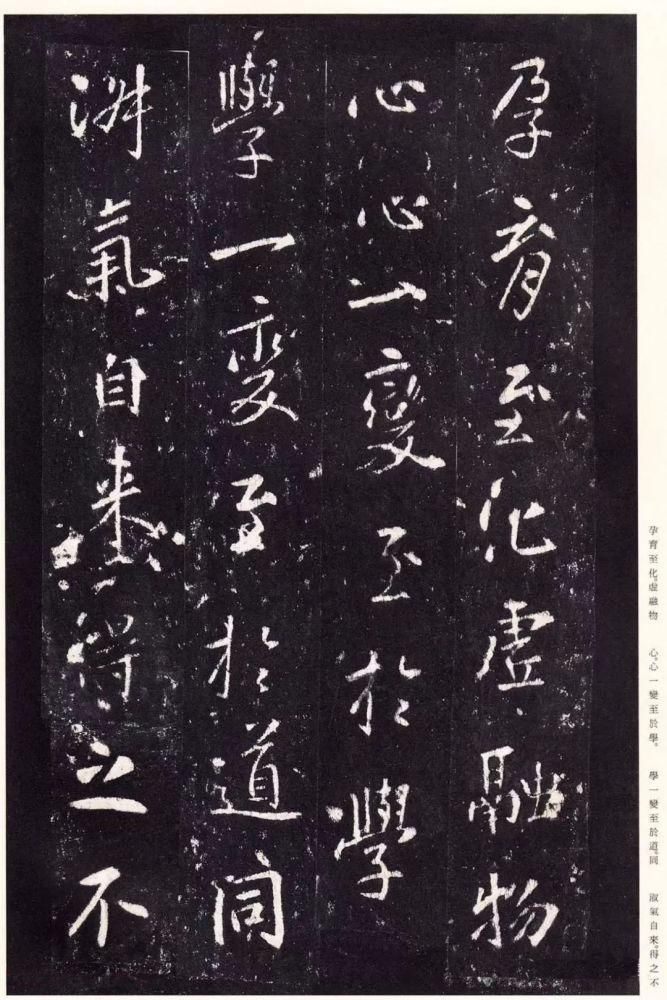 孕育至化虛融物
心心一變至於學
學一變至於道同
淑氣自來得之不
孕育至化。虛融物　心。心一變至於學。　學一變至於道。同　淑氣自來。得之不